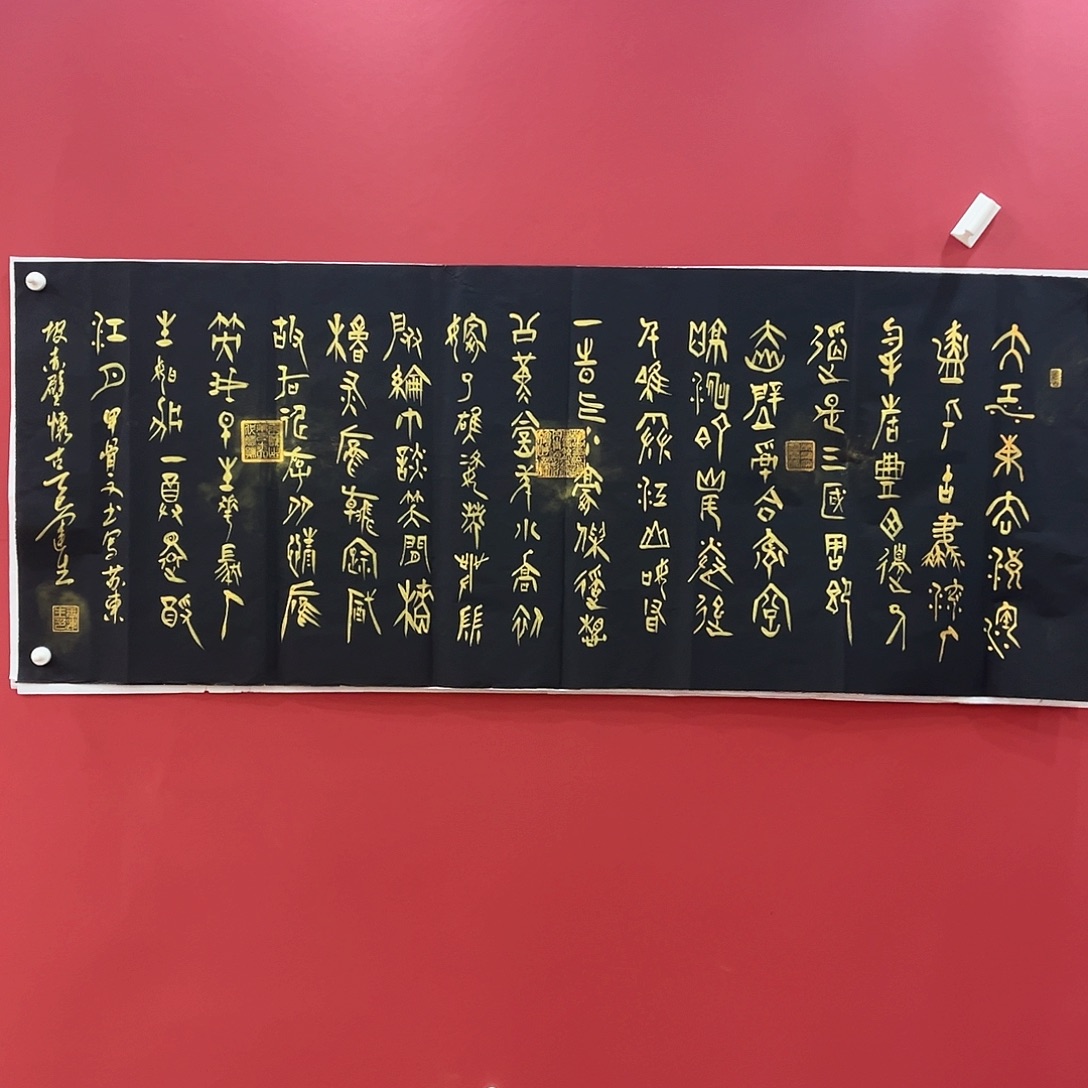 大江東去浪淘
盡千古風流人
物故壘西邊人
道是三國周郎
赤壁亂石穿空
驚濤拍岸卷起
千堆雪江山如畫
一時多少豪傑遙想
公瑾當年小喬初
嫁了雄姿英發羽
扇綸巾談笑間檣
櫓灰飛煙滅
故國神遊多情應
笑我早生華髮人
生如夢一尊還酹
江月 甲骨文书写苏東
坡赤壁懷古